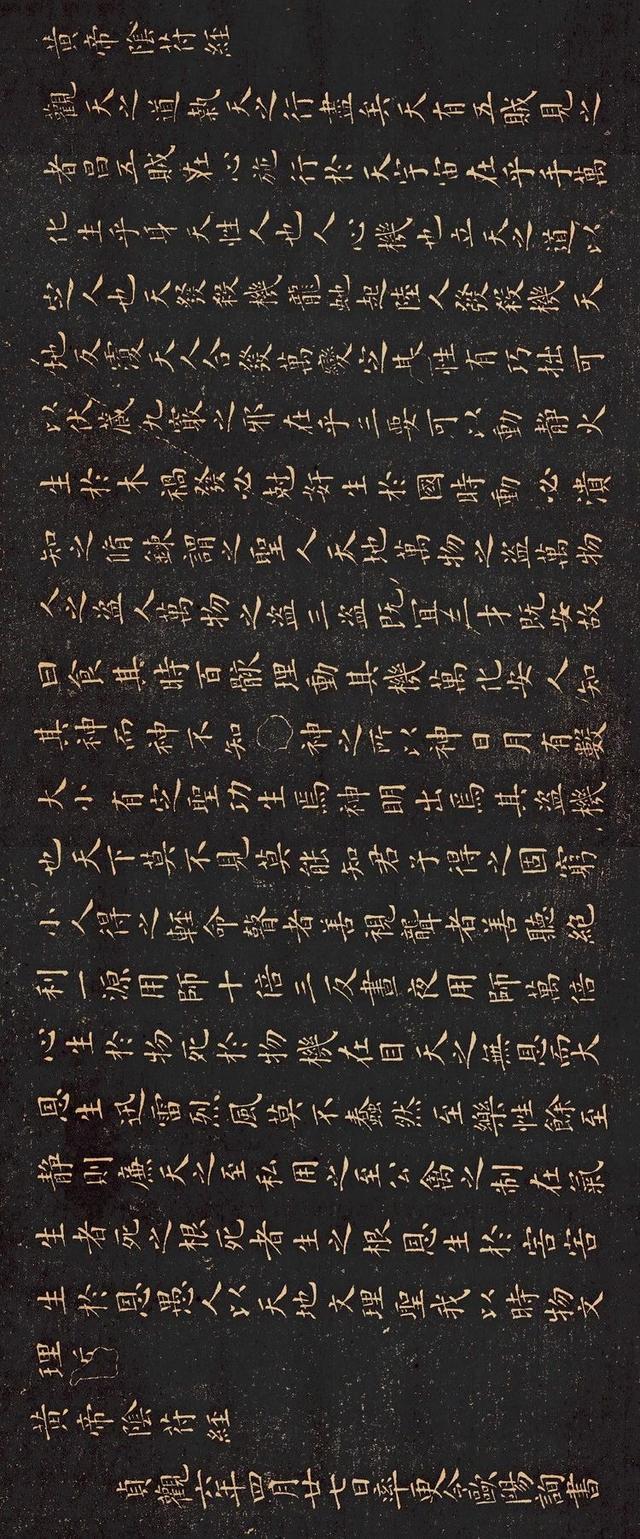 黄帝陰符經
觀天之道執天之行盡矣天有五賊見之
者昌五賊在心施行於天宇宙在乎手萬
化生乎身天性人也人心機也立天之道以
定人也天發殺機龍虵起陸人發殺機天
地反覆天人合發萬變定基性有巧拙可
以伏藏九竅之邪在乎三要可以動靜火
生於木禍發必尅姧生於國時動必潰
知之脩錬謂之聖人天地萬物之盜萬物
人之盜人萬物之盜三盜既宜三才既安故
曰食其時百骸理動其機萬化安人知
其神而神不知神之所以神日月有數
大小有定聖功生焉神明出焉其盜機
也天下莫不見莫能知君子得之固窮
小人得之輕命瞽者善視聾者善聽絕
利一源用師十倍三反晝夜用師萬倍
心生於物死於物機在目天之無恩而大
恩生迅雷烈風莫不蠢然至樂性餘至
靜則廉天之至私用之至公禽之制在氣
生者死之根死者生之根恩生於害害
生於恩愚人以天地文理聖我以時物文
理
黄帝陰符經
貞觀六年四月廿七日率更令歐陽詢書